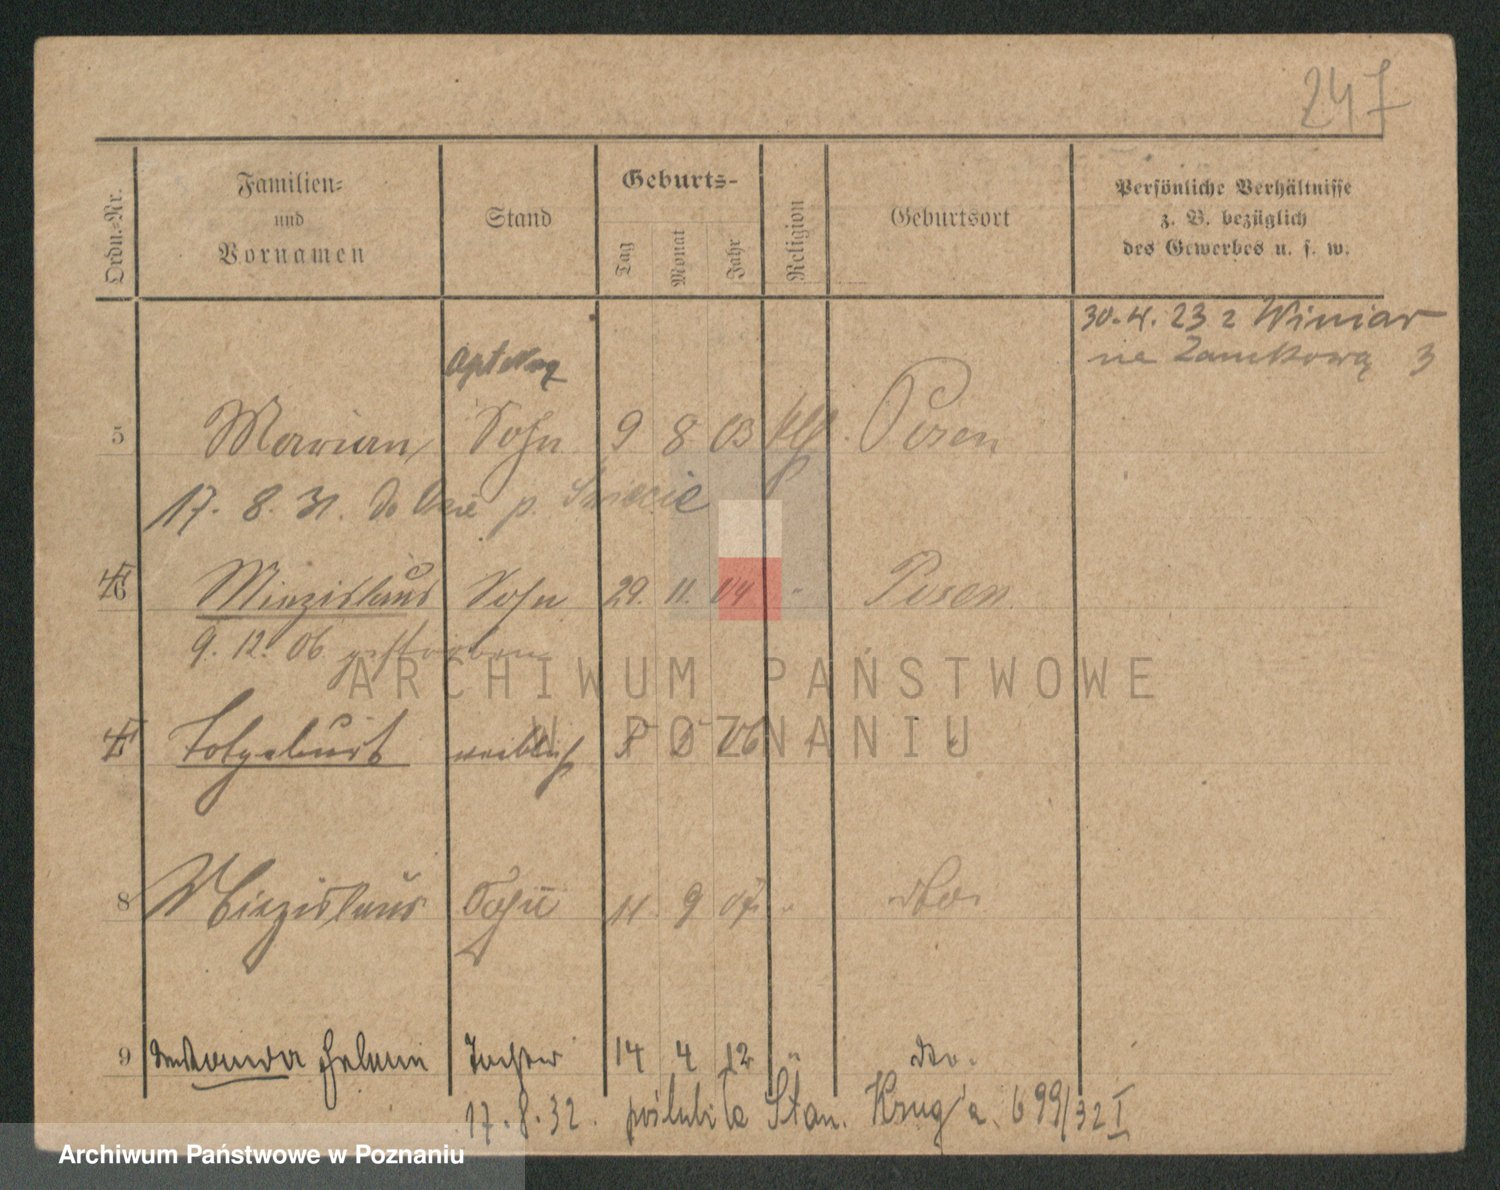 247
Ordn.-Nr.
Familien-
und
Vornamen
Stand
Geburts-
Tag
Monat
Jahr
Religion
Geburtsort
Persönliche Verhältnisse
z. B. bezüglich
des Gewerbes u. s. w.
30.4.23 z Winiar
na Zamkową 3
5 Marian Sohn 9 8 03 Posen
17. 8. 31. do p. Świecie
6 Miezislaus Sohn 29. 11. 04 " Posen
9. 12. 06 gestorben
Totgeburt weiblich 06
8 Miezislaus Sohn 11 9 07 " dto.
9 Wanda Helene Tochter 14 4 12 " dto.
17.8.32. poślubiła Stan. Krug'a 699/32 I
ARCHIWUM PAŃSTWOWE
W POZNANIU
Archiwum Państwowe w Poznaniu